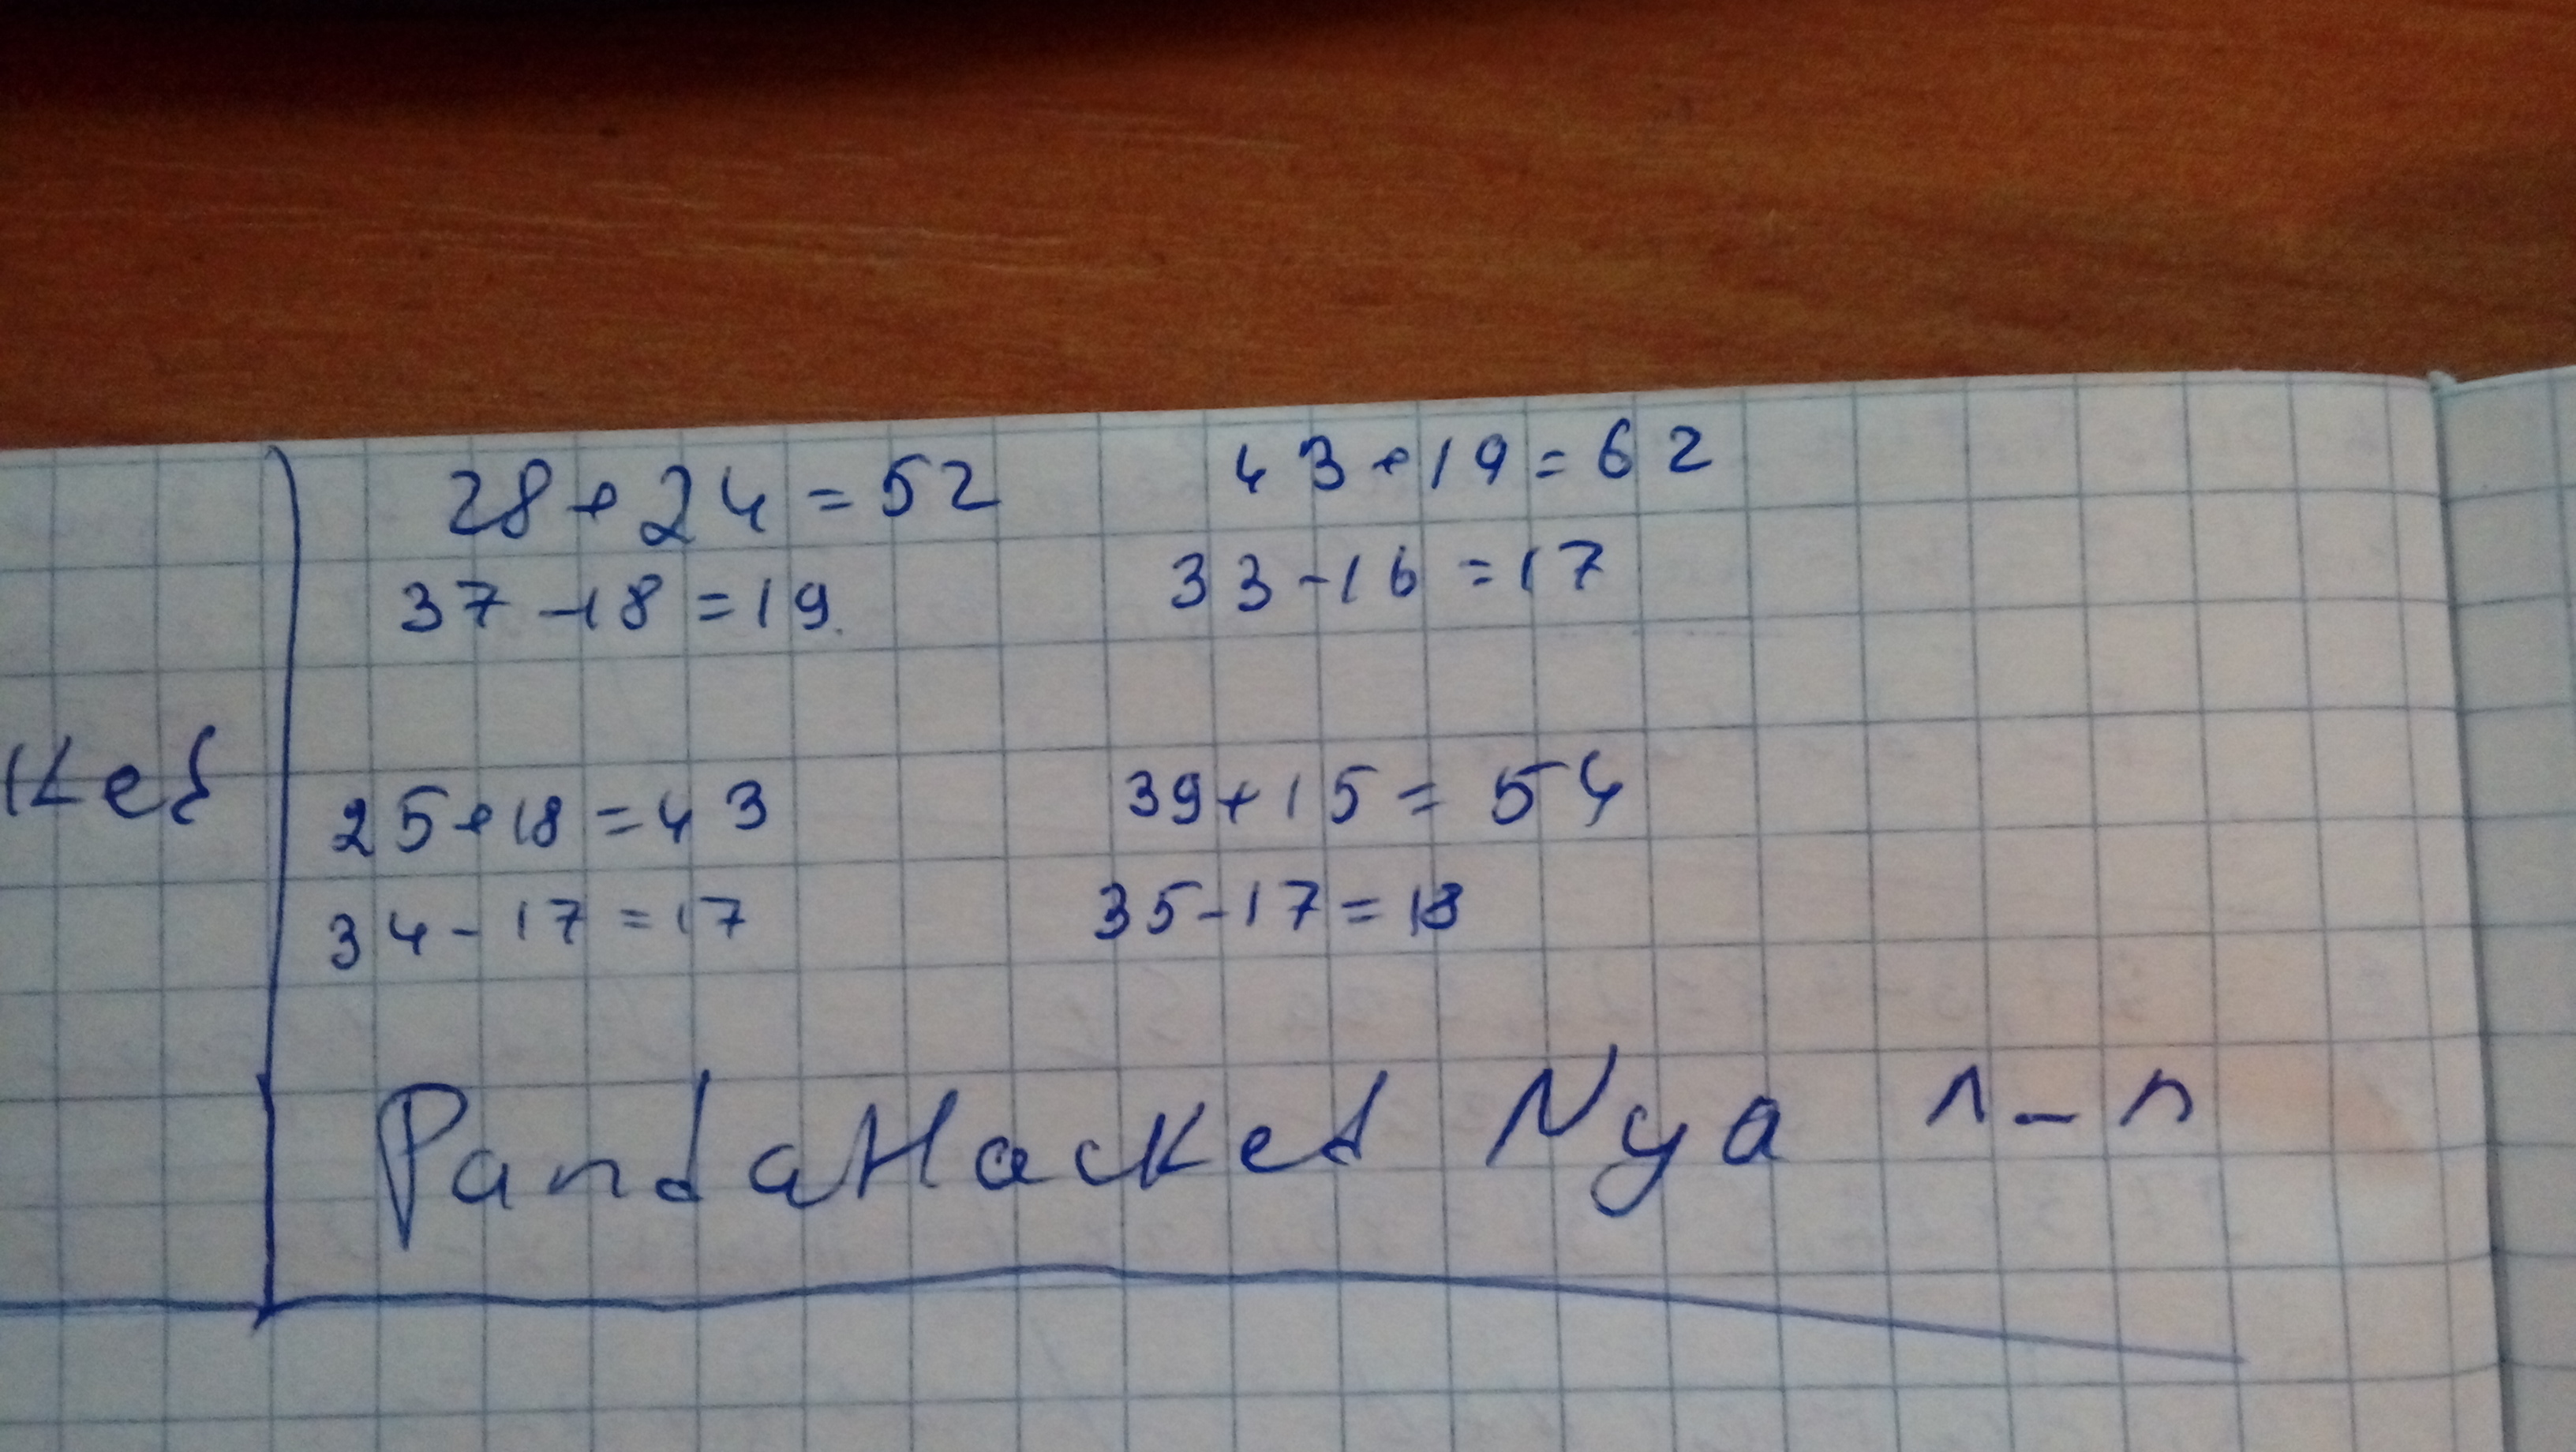 28+24=52 43+19=62
37-18=19 33-16=17
25+18=43 39+15=54
34-17=17 35-17=18
PandaHacked Nya ^_^